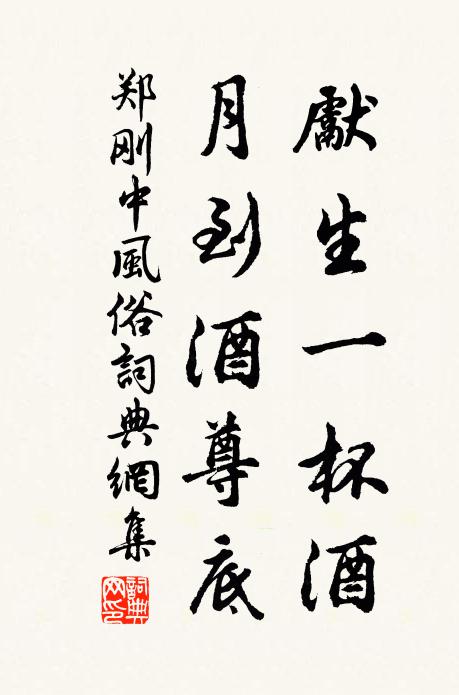 獻生一杯酒
月到酒尊底
郑刚中風俗詞典網集
詞典